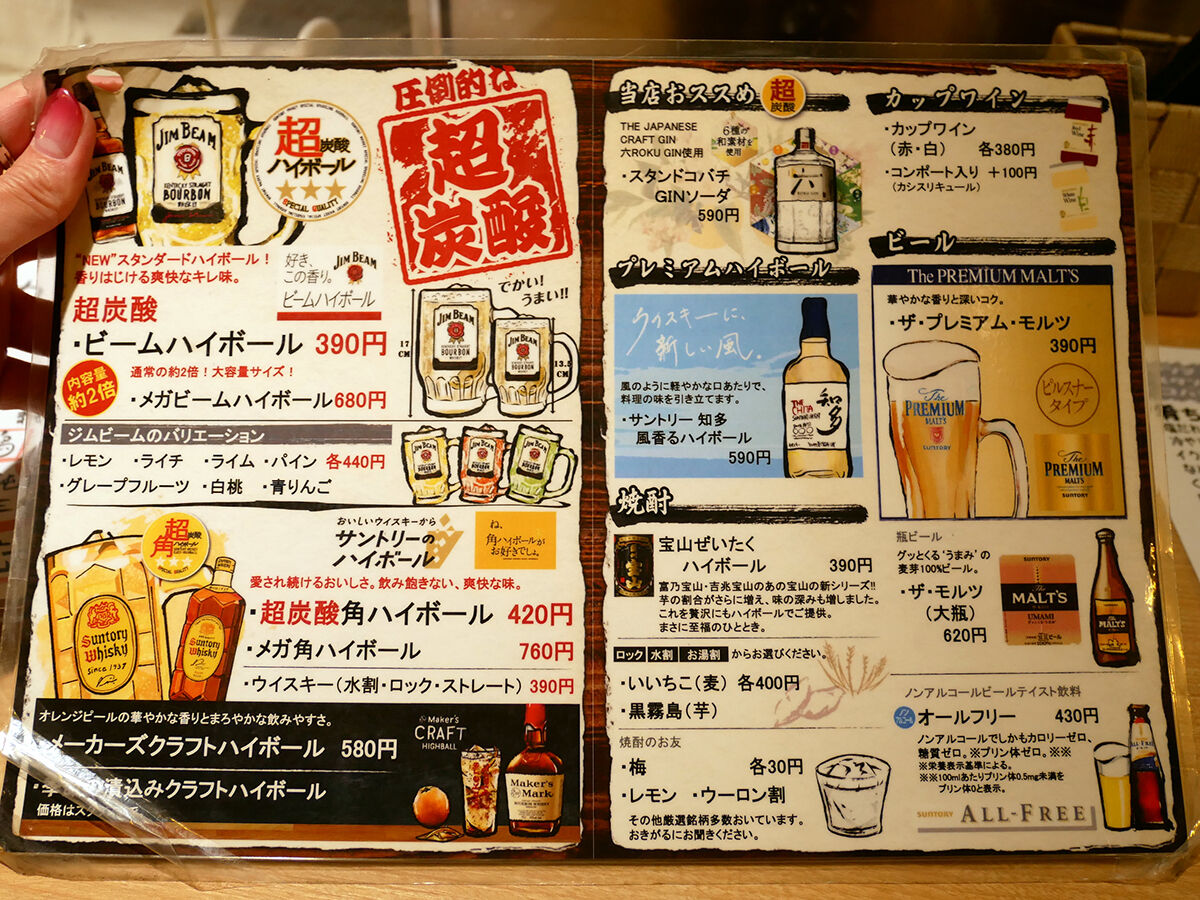 圧倒的な
超
炭酸
JIM BEAM
KENTUCKY STRAIGHT
BOURBON
超炭酸
ハイボール
★★★
SPECIAL QUALITY
"NEW"スタンダードハイボール！
香りはじける爽快なキレ味。
好き、
この香り。
ビームハイボール
JIM BEAM
超炭酸
・ビームハイボール 390円
内容量
約2倍
通常の約2倍！大容量サイズ！
・メガビームハイボール 680円
でかい！
うまい!!
17
CM
13.5
CM
JIM BEAM
BOURBON
JIM BEAM
BOURBON
ジムビームのバリエーション
・レモン ・ライチ ・ライム ・パイン 各440円
・グレープフルーツ ・白桃 ・青りんご
超炭酸
角ハイボール
おいしいウイスキーから
サントリーの
ハイボール
ね、
角ハイボールが
お好きでしょ。
愛され続けるおいしさ。飲み飽きない、爽快な味。
・超炭酸角ハイボール 420円
・メガ角ハイボール 760円
・ウイスキー（水割・ロック・ストレート） 390円
Suntory
Whisky
Since 1937
Suntory
Whisky
オレンジピールの華やかな香りとまろやかな飲みやすさ。
メーカーズクラフトハイボール 580円
漬込みクラフトハイボール
価格はス
Maker's
CRAFT
HIGHBALL
Maker's
Mark
当店おススメ
超
炭酸
THE JAPANESE
CRAFT GIN
六ROKU GIN使用
6種の
和素材を
使用
・スタンドコバチ
GINソーダ
590円
六
プレミアムハイボール
ウイスキーに、
新しい風。
風のように軽やかな口あたりで、
料理の味を引き立てます。
・サントリー 知多
風香るハイボール
590円
THE
CHITA
知多
焼酎
宝山ぜいたく
ハイボール 390円
富乃宝山・吉兆宝山のあの宝山の新シリーズ!!
芋の割合がさらに増え、味の深みも増しました。
これを贅沢にもハイボールでご提供。
まさに至福のひととき。
ロック 水割 お湯割 からお選びください。
・いいちこ（麦） 各400円
・黒霧島（芋）
焼酎のお友
・梅 各30円
・レモン ・ウーロン割
その他厳選銘柄多数おいています。
おきがるにお聞きください。
カップワイン
・カップワイン
（赤・白） 各380円
・コンポート入り ＋100円
（カシスリキュール）
Red
Wine
White
Wine
ビール
The PREMIUM MALT'S
華やかな香りと深いコク。
・ザ・プレミアム・モルツ
390円
ピルスナー
タイプ
The
PREMIUM
MALT'S
SUNTORY
The
PREMIUM
MALT'S
SUNTORY
瓶ビール
グッとくる‘うまみ’の
麦芽100%ビール。
・ザ・モルツ
（大瓶）
620円
SUNTORY
The
MALT'S
UMAMI
MALT'S
ノンアルコールビールテイスト飲料
ノン
アルコール
オールフリー 430円
ノンアルコールでしかもカロリーゼロ、
糖質ゼロ。※プリン体ゼロ。※※
※栄養表示基準による。
※※100mlあたりプリン体0.5mg未満を
プリン体0と表示。
SUNTORY ALL-FREE